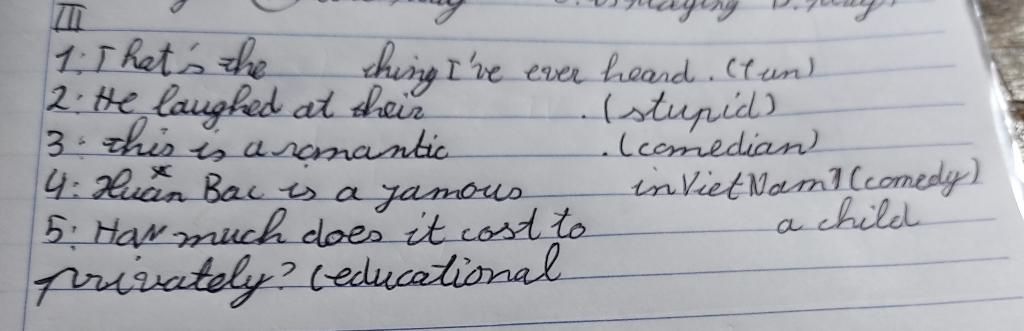 III
1: That's the thing I've ever heard. (fun)
2: He laughed at their . (stupid)
3: this is a romantic . (comedian)
4: Xuân Bac is a famous in Viet Nam? (comedy)
5: How much does it cost to a child
privately? (educational